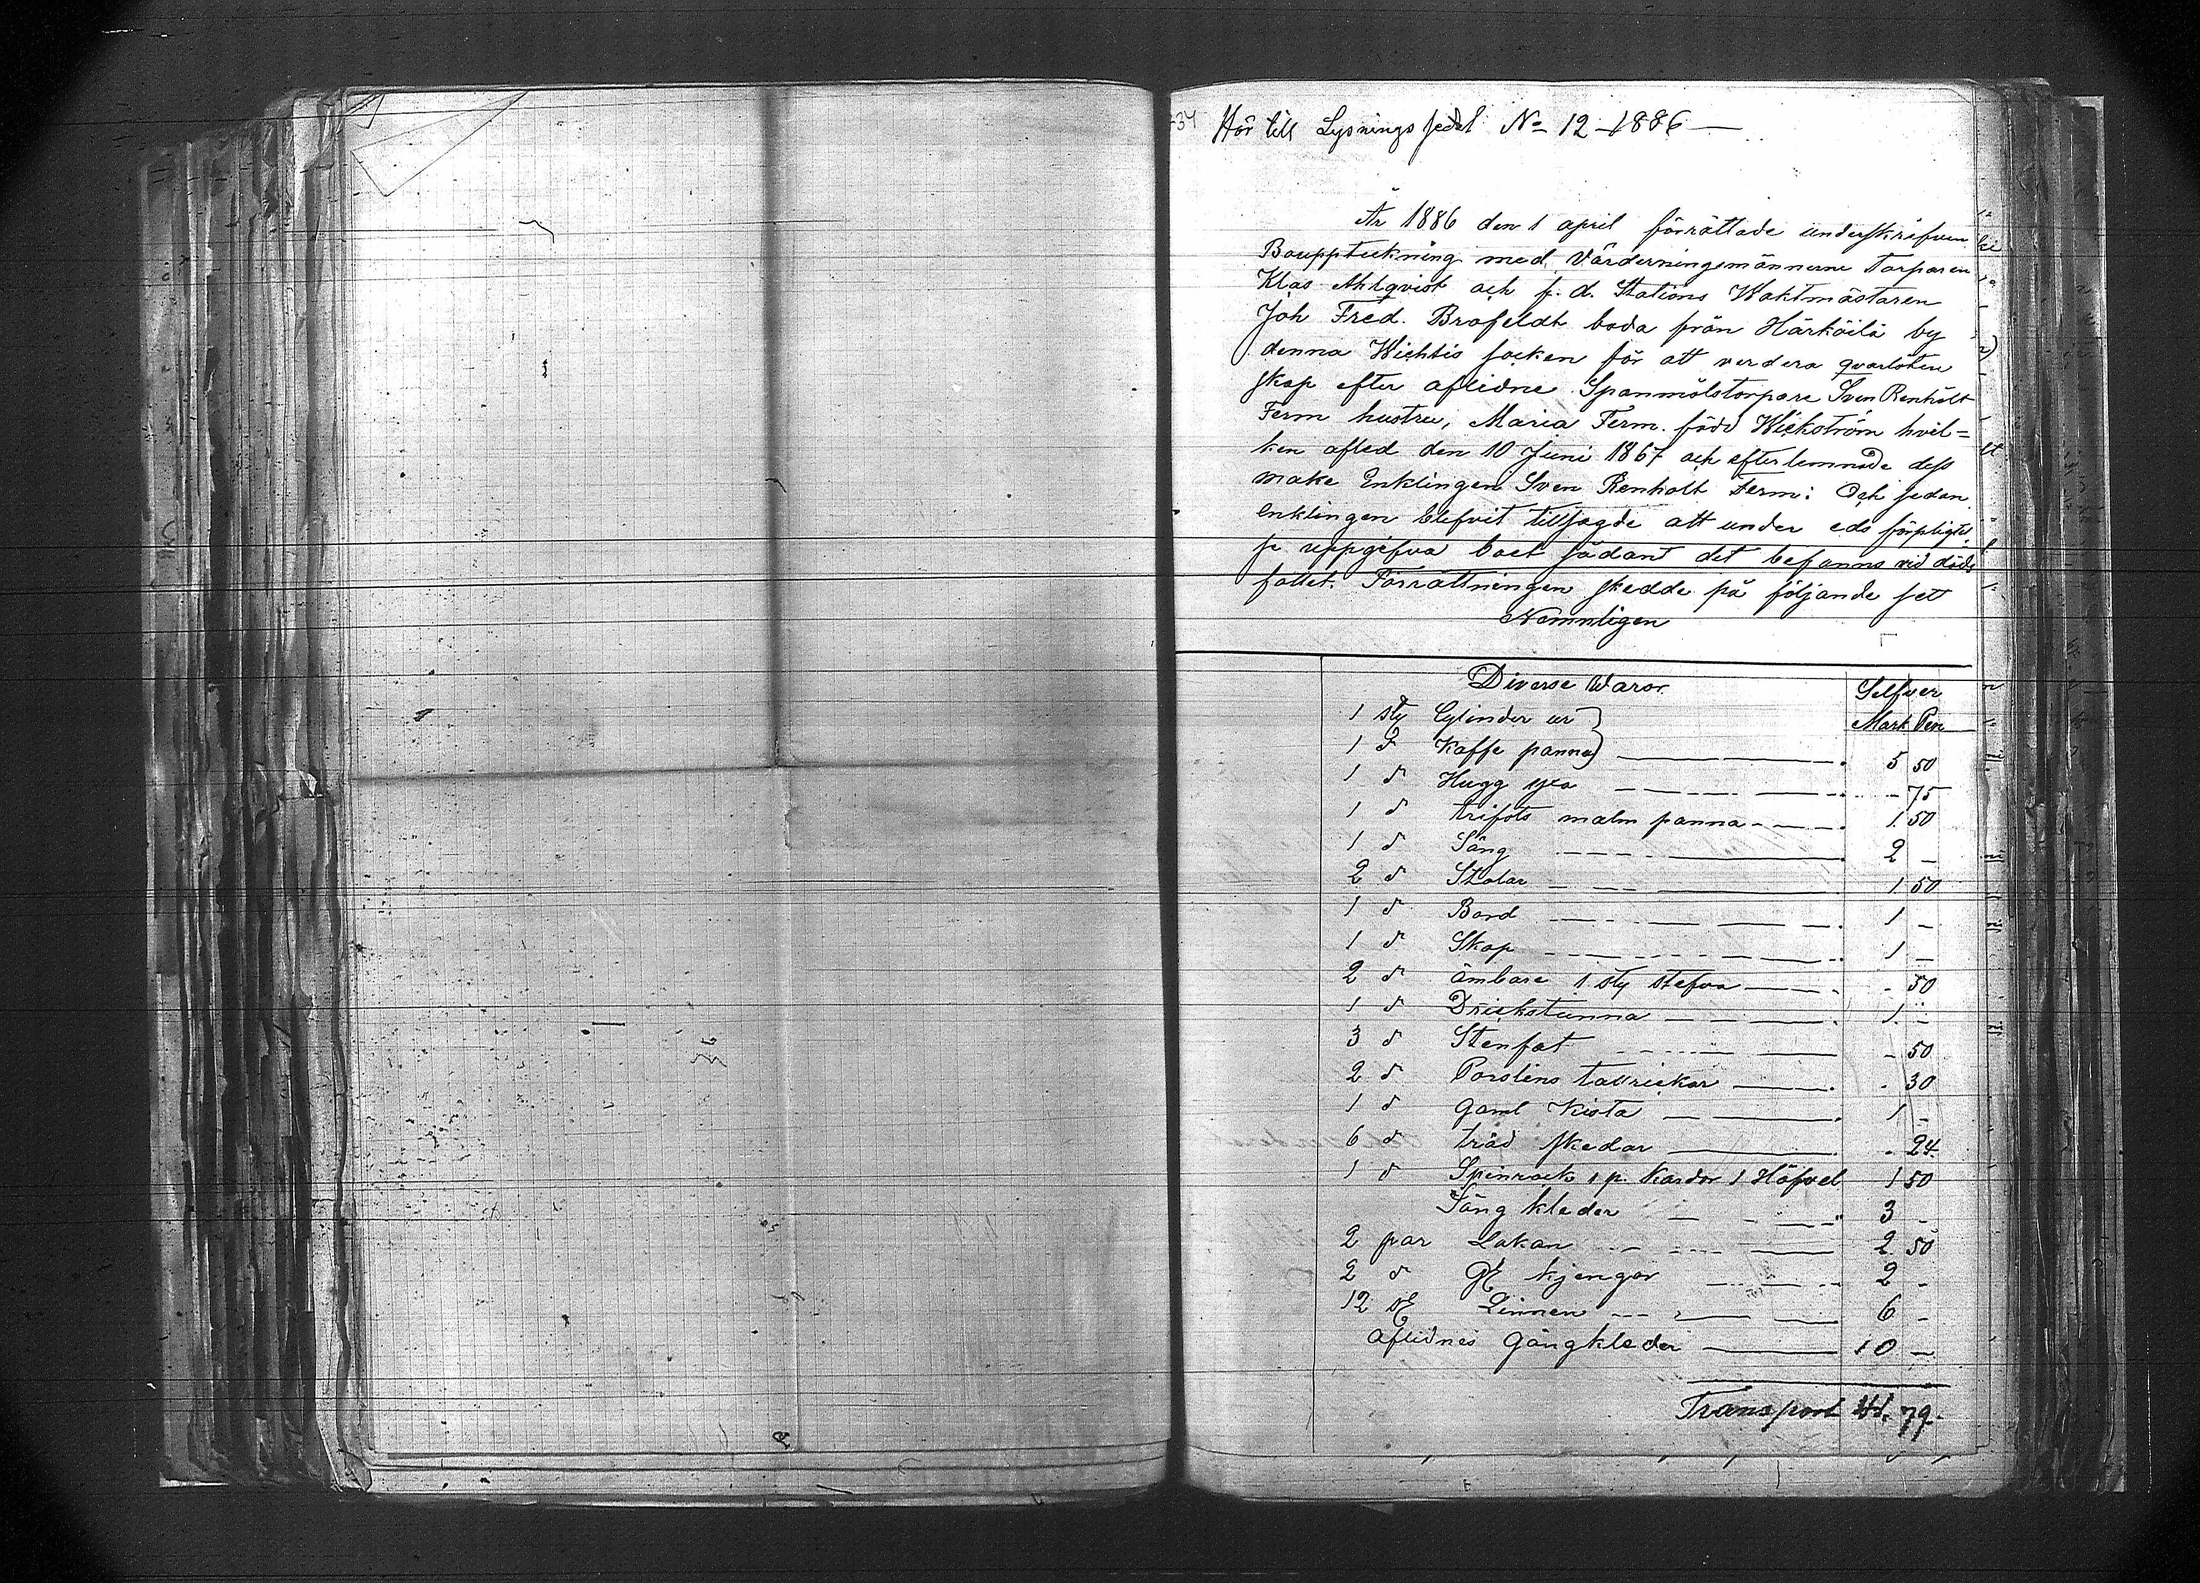 34
Hör till Lysningssedel No 12 - 1886 —
År 1886 den 1 april förrättade underskrifven
Bouppteckning med Värderingsmännerne Torparen
Klas Ahlqvist och f. d. Stations Waktmästaren
Joh Fred. Brofeldt boda från Härköilä by
denna Wichtis socken för att verdera qvarlåten
skap efter aflidne Spanmålstorpare Sven Renholt
Ferm hustru, Maria Ferm. född Wickström hvil=
ken afled den 10 Juni 1867 och efterlemnade dess
make Enklingen Sven Renholt Ferm: Och sedan
enklingen blefvit tillsagde att under eds förpligtel
se uppgifva boet sådant det befanns vid döds
fallet. Förrättningen skedde på följande set
Nemnligen
Diverse Waror Selfver
1 sty Cylinder ur Mark Pen
1 d Kaffe panna — 5 50
1 d Hugg yxa — - 75
1 d trifots malm panna — 1. 50
1 d Säng — 2 —
2 d Stolar — 1 50
1 d Bord — 1 —
1 d Skop — 1 —
2 d ämbare 1 sty stefva — - 50
1 d Drickstunna — 1. —
3 d Stenfat — - 50
2 d Porslins tallrickar — - 30
1 d gaml kista — 1 -
6 d träd skedar — - 24
1 d Spinrock 1 p. Kardor 1 Häfvel 1 50
Säng kleder — 3 -
2 par Lakan — 2 50
2 d kjengor — 2 -
12 Linnen — 6 -
Aflidnes Gångkleder — 10 —
Transport 79.